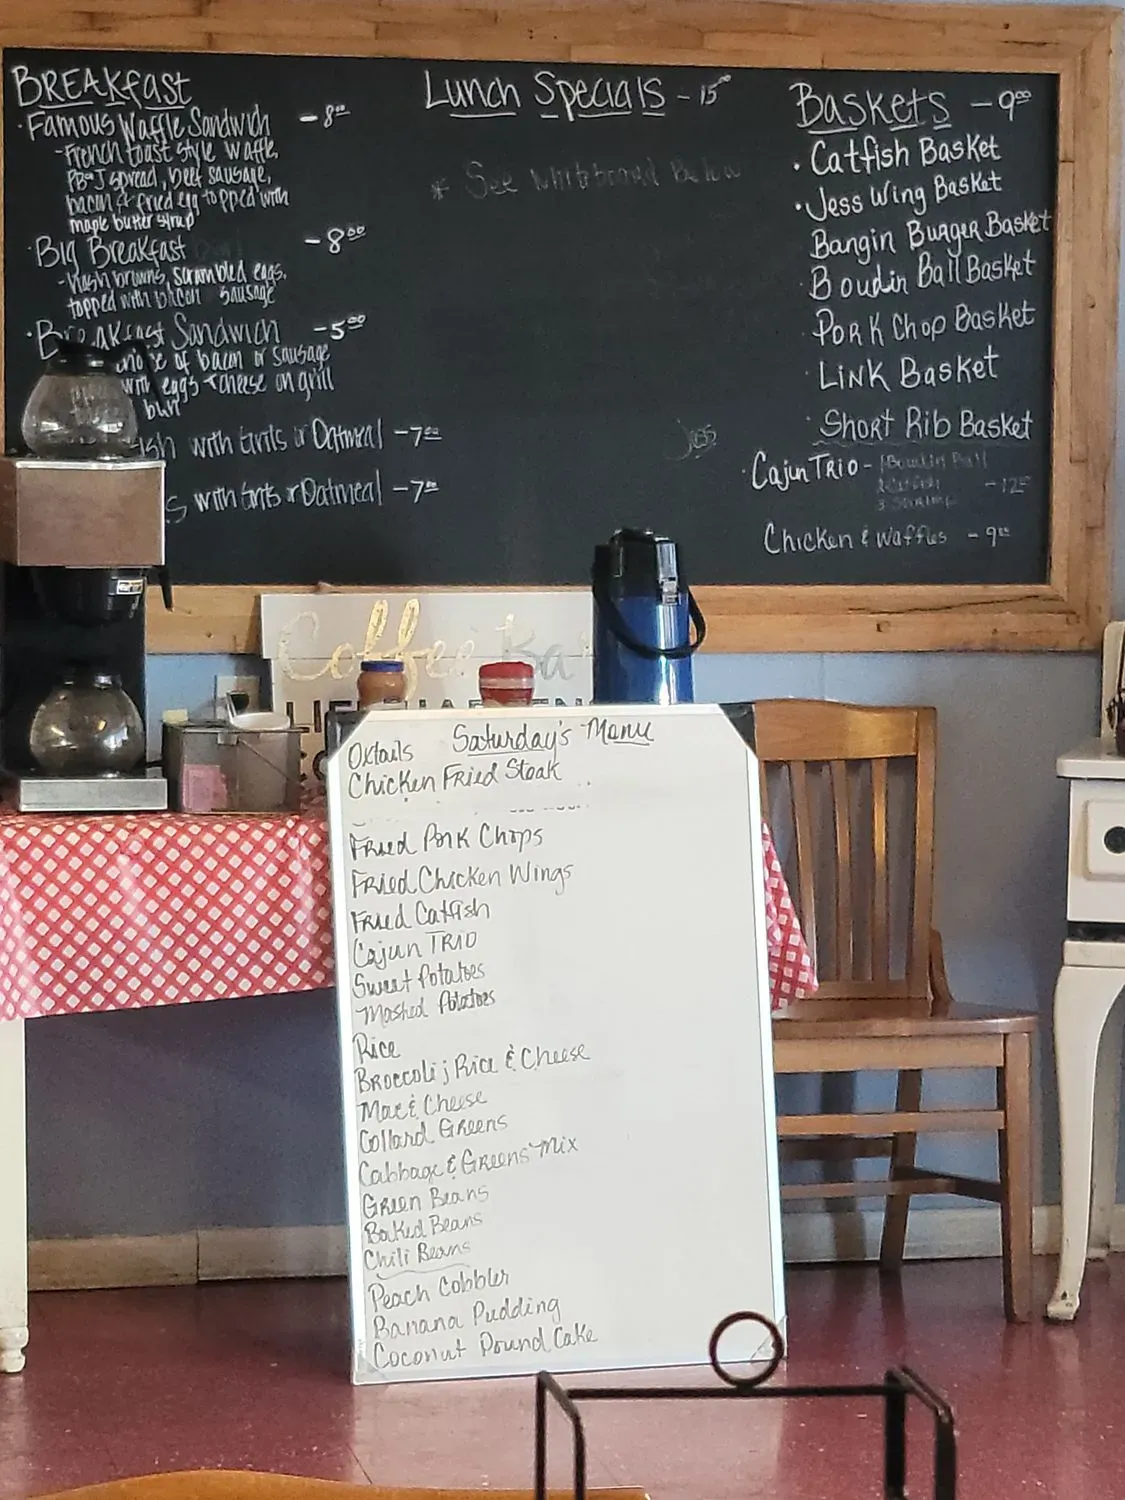 BREAKfast
·Famous Waffle Sandwich - 8⁰⁰
-French toast style waffle,
PB&J spread, beef sausage,
bacon & fried egg topped with
maple butter syrup
·Big Breakfast - 8⁰⁰
-Hash browns, scrambled eggs,
topped with bacon sausage
·Breakfast Sandwich - 5⁰⁰
of bacon or sausage
with eggs + cheese on grill
bun
with Grits or Oatmeal - 7⁰⁰
with Grits or Oatmeal - 7⁰⁰
Lunch Specials - 15⁰⁰
* See whiteboard Below
Jess
Baskets - 9⁰⁰
· Catfish Basket
· Jess Wing Basket
Bangin Burger Basket
· Boudin Ball Basket
· Pork Chop Basket
· Link Basket
· Short Rib Basket
· Cajun Trio - 1 Boudin Ball
2 Catfish - 12⁰⁰
3 Shrimp
Chicken & Waffles - 9⁰⁰
Coffee Ba
Saturday's Menu
Oxtails
Chicken Fried Steak
Fried Pork Chops
Fried Chicken Wings
Fried Catfish
Cajun TRIO
Sweet Potatoes
Mashed Potatoes
Rice
Broccoli, Rice & Cheese
Mac & Cheese
Collard Greens
Cabbage & Greens Mix
Green Beans
Baked Beans
Chili Beans
Peach Cobbler
Banana Pudding
Coconut Pound Cake